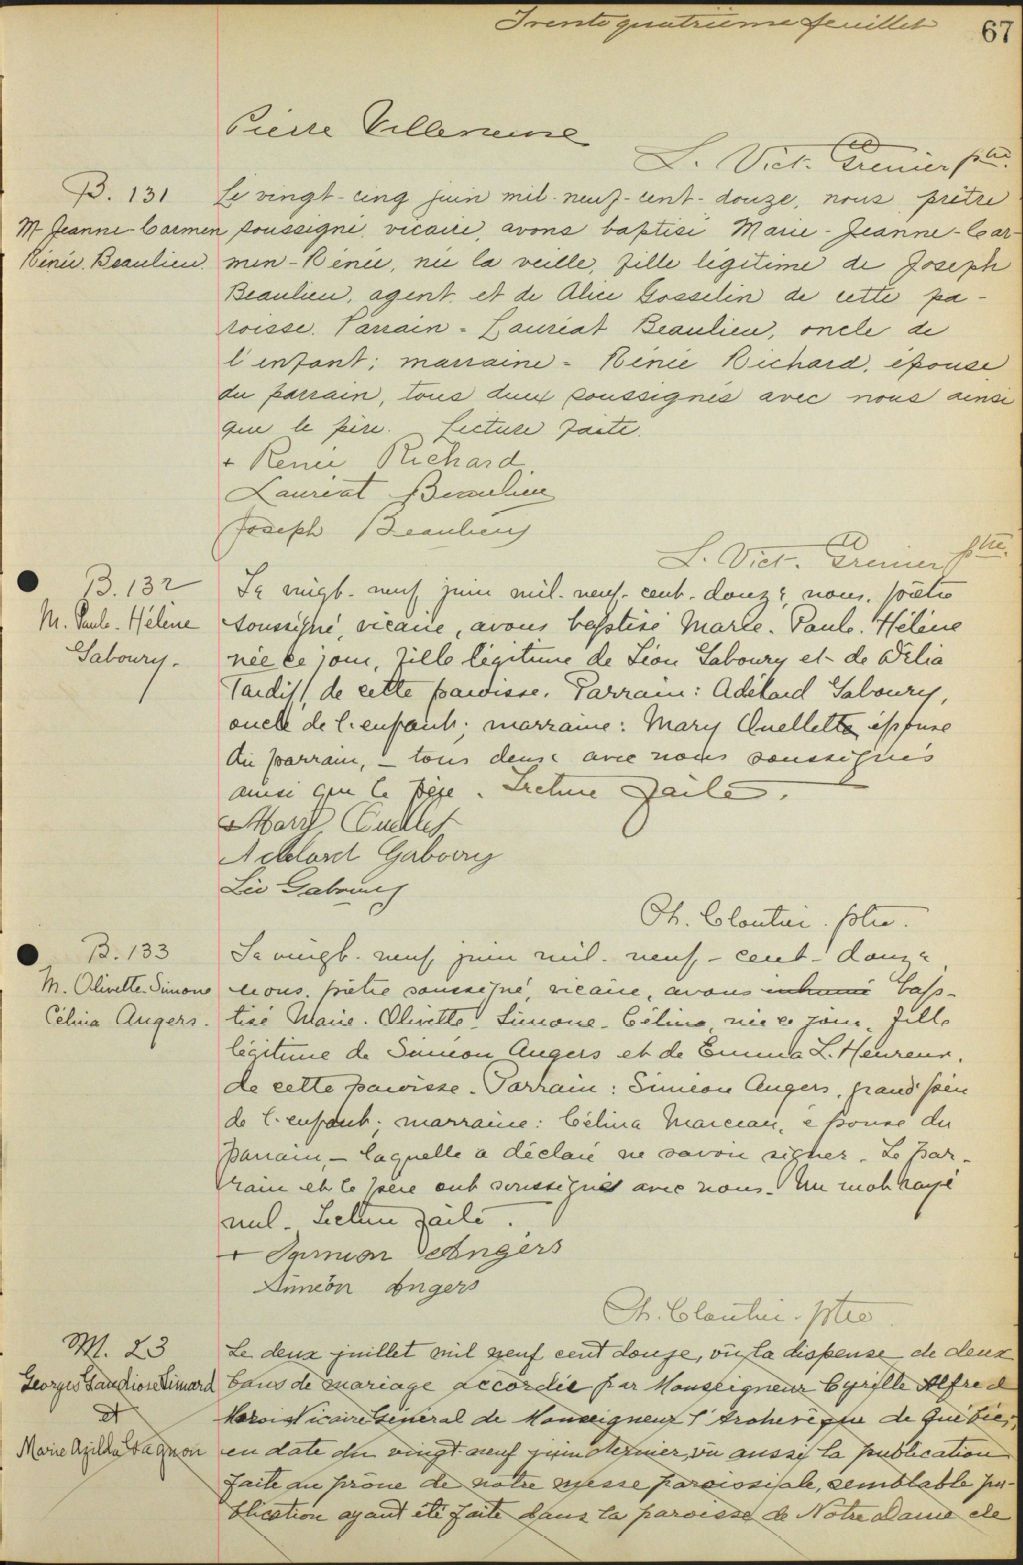 Trente quatrième feuillet
67
Pierre Villeneuve
L. Vict. Grenier ptre.
B. 131
M. Jeanne-Carmen
Rénée Beaulieu.
Le vingt-cinq juin mil-neuf-cent-douze, nous prêtre
soussigné, vicaire, avons baptisé Marie-Jeanne-Car-
men-Rénée, née la veille, fille légitime de Joseph
Beaulieu, agent et de Alice Gosselin de cette pa-
roisse. Parrain = Lauréat Beaulieu, oncle de
l'enfant; marraine = Rénée Richard, épouse
du parrain, tous deux soussignés avec nous ainsi
que le père. Lecture faite.
+ Renée Richard
Lauréat Beaulieu
Joseph Beaulieu
L. Vict. Grenier ptre.
B. 132
M. Paule-Hélène
Gaboury.
Le vingt-neuf juin mil-neuf-cent-douze, nous, prêtre
soussigné, vicaire, avons baptisé Marie-Paule-Hélène
née ce jour, fille légitime de Léon Gaboury et de Délia
Tardif, de cette paroisse. Parrain: Adélard Gaboury,
oncle de l'enfant; marraine: Mary Ouellette épouse
du parrain, – tous deux avec nous soussignés
ainsi que le père. Lecture faite.
+ Mary Ouellet
Adelard Gaboury
Léo Gaboury
Ph. Cloutier. ptre.
B. 133
M. Olivette-Simone
Célina Angers.
Le vingt-neuf juin mil-neuf-cent-douze,
nous, prêtre soussigné, vicaire, avons inhumé bap-
tisé Marie-Olivette-Simone-Célina, née ce jour, fille
légitime de Siméon Angers et de Emma L'Heureux,
de cette paroisse. Parrain: Siméon Angers, grand'père
de l'enfant; marraine: Célina Marceau, épouse du
parrain, – laquelle a déclaré ne savoir signer. Le par-
rain et le père ont soussigné avec nous. Un mot rayé
nul. Lecture faite.
+ Symion Angers
Siméon Angers
Ph. Cloutier. ptre
M. 23
Georges Gaudiose Simard
et
Marie Azilda Gagnon
Le deux juillet mil neuf cent douze, vu la dispense de deux
bans de mariage accordée par Monseigneur Cyrille Alfred
Marois Vicaire Général de Monseigneur l'Archevêque de Québec,
en date du vingt neuf juin dernier, vu aussi la publication
faite au prône de notre messe paroissiale, semblable pu-
blication ayant été faite dans la paroisse de Notre Dame de